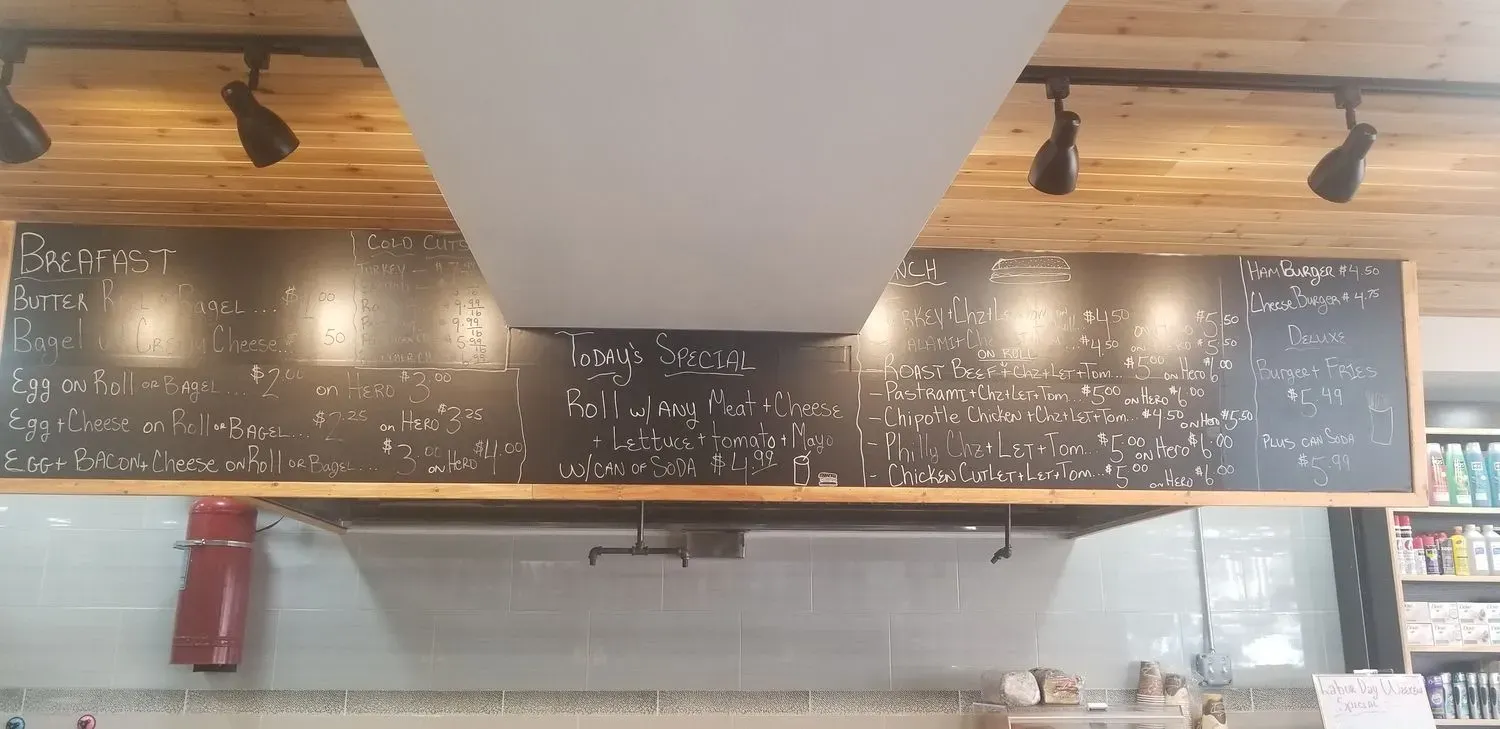 BREAFAST
BUTTER Roll or BAGEL ... $1.00
Bagel w/ Cream Cheese... 50
Egg on Roll OR BAGEL... $2.00 on HERO $3.00
Egg + Cheese on Roll OR BAGEL... $2.25 on HERO $3.25
EGG + BACON + Cheese on Roll OR Bagel.... $3.00 on HERO $4.00
COLD CUTS
TURKEY — $
9.99 lb
9.99 lb
5.99
TODAY'S SPECIAL
Roll w/ ANY Meat + Cheese
+ Lettuce + tomato + Mayo
w/CAN OF SODA $4.99
NCH
RKEY + Chz + Let $4.50 on HERO $5.50
ALAMI + Chz $4.50 on HERO $5.50
ON ROLL
- ROAST BEEF + Chz + Let + Tom... $5.00 on Hero $6.00
- PASTRAMI + Chz + LET + Tom... $5.00 on HERO $6.00
- Chipotle Chicken + Chz + LET + Tom... $4.50 on Hero $5.50
- Philly Chz + LET + Tom... $5.00 on Hero $6.00
- Chicken CUTLET + Let + Tom... $5.00 on HERO $6.00
HAM BURGER $4.50
Cheese Burger $4.75
DELUXE
Burger + FRIES
$5.49
PLUS CAN SODA
$5.99
Labor Day Weekend
Special